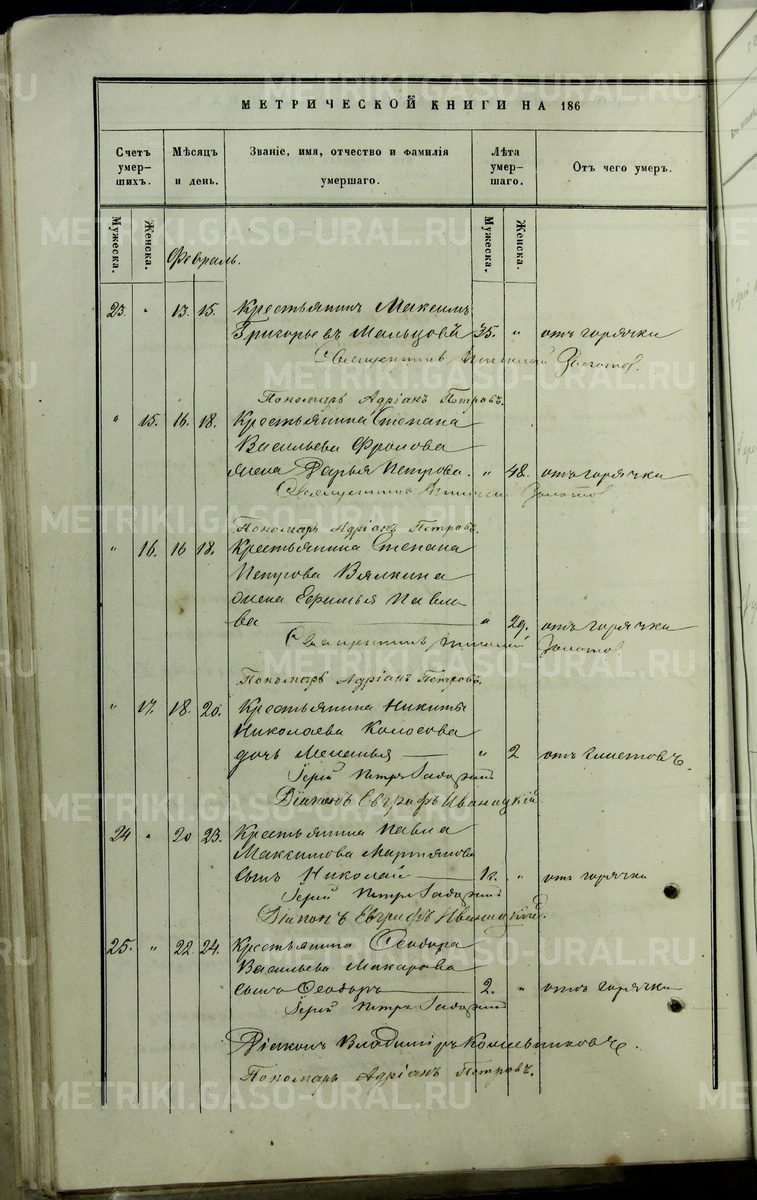 МЕТРИЧЕСКОЙ КНИГИ НА 186
Счетъ умер- шихъ. Мѣсяцъ и день. Званіе, имя, отчество и фамилія умершаго. Лѣта умер- шаго. Отъ чего умеръ.
Мужеска. Женска. Мужеска. Женска.
Февраль.
23. " 13. 15. Крестьянинъ Максимъ
Григорьевъ Мальцовъ 35. " отъ горячки
Священникъ Золотов.
Пономарь Адріанъ Петровъ.
" 15. 16. 18. Крестьянина Степана
Васильева Фролова
жена Дарья Петрова. " 48. отъ горячки
Священникъ Золотов
Пономарь Адріанъ Петровъ.
" 16. 16 18. Крестьянина Степана
Петрова Вялкина
жена Ефимья Павло
ва " 29. отъ горячки
Священникъ Золотов.
Пономарь Адріанъ Петровъ.
" 17. 18. 20. Крестьянина Никиты
Николаева Колосова
дочь Меланья " 2 отъ глистовъ.
Іерей Петръ
Діаконъ Евграфъ Иваницкій
24 " 20 23. Крестьянина Павла
Максимова Мартьянова
сынъ Николай " отъ горячки
Іерей Петръ
Діаконъ Евграфъ Иваницкій.
25. " 22. 24. Крестьянина Ѳеодора
Васильева Макарова
сынъ Ѳеодоръ 2. " отъ горячки
Іерей Петръ
Діаконъ Владиміръ Кошевниковъ.
Пономарь Адріанъ Петровъ.
METRIKI.GASO-URAL.RU